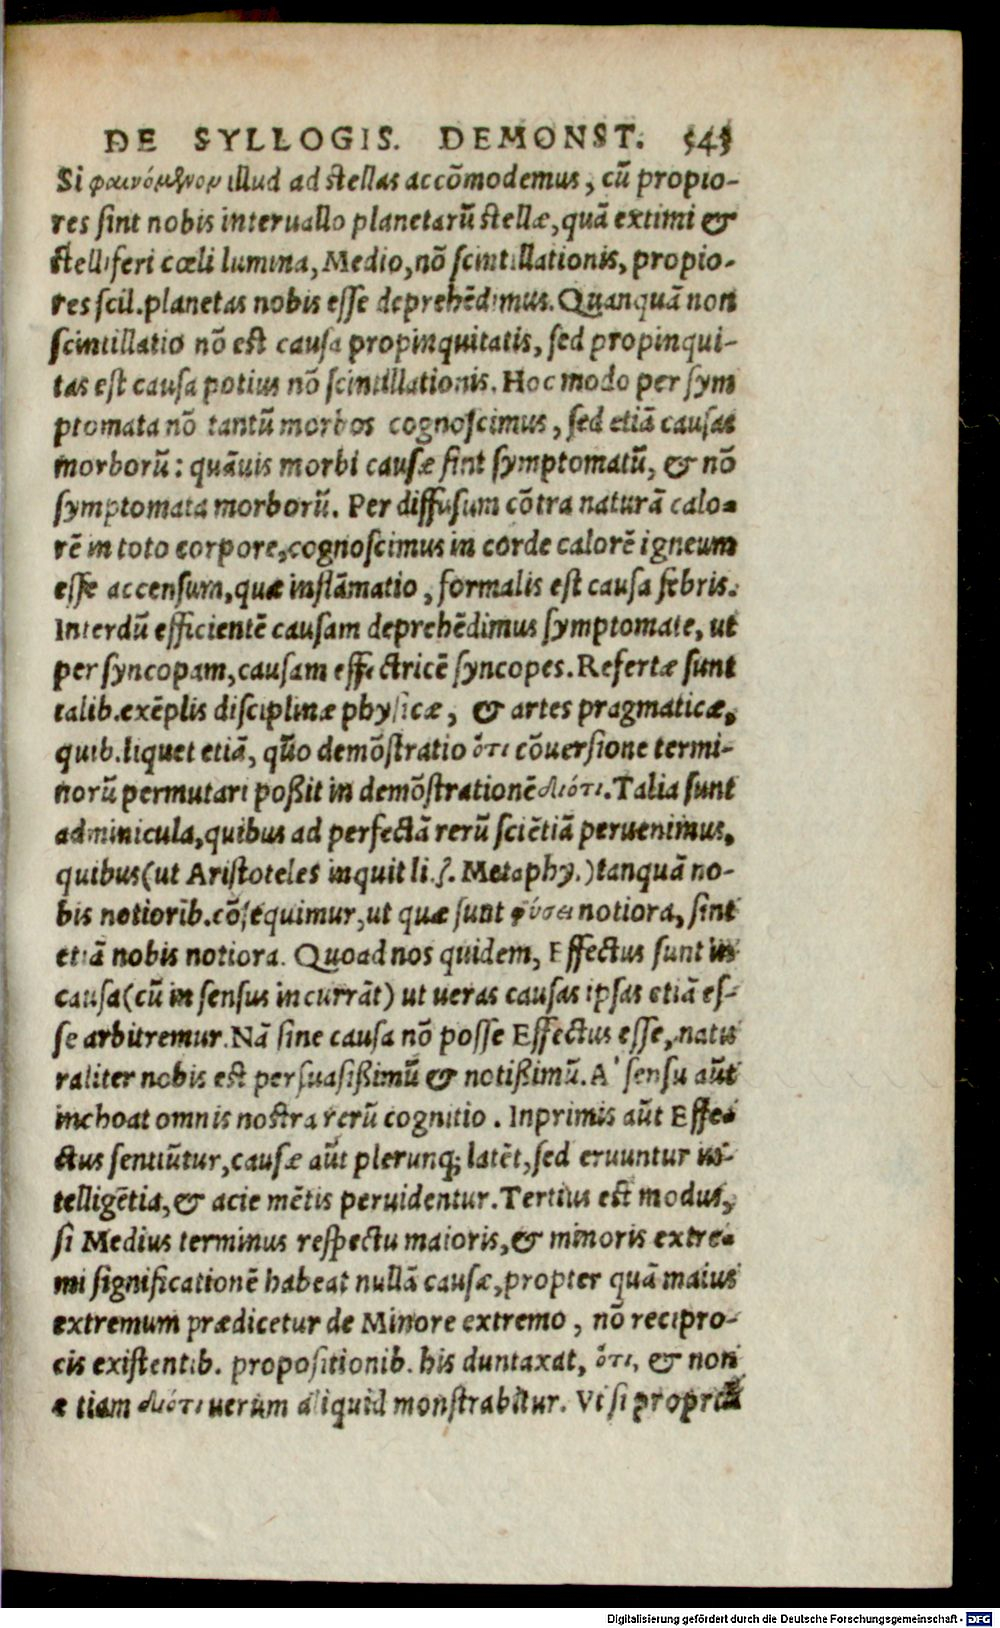 DE SYLLOGIS. DEMONST. 543
Si φαινόμενον illud ad stellas accõmodemus, cũ propio-
res sint nobis interuallo planetarũ stellæ, quã extimi &
stelliferi cœli lumina, Medio, nõ scintillationis, propio-
res scil. planetas nobis esse deprehẽdimus. Quanquã non
scintillatio nõ est causa propinquitatis, sed propinqui-
tas est causa potius nõ scintillationis. Hoc modo per sym
ptomata nõ tantũ morbos cognoscimus, sed etiã causas
morborũ: quãuis morbi causæ sint symptomatũ, & nõ
symptomata morborũ. Per diffusum cõtra naturã calo-
rẽ in toto corpore, cognoscimus in corde calorẽ igneum
esse accensum, quæ inflãmatio, formalis est causa febris.
Interdũ efficientẽ causam deprehẽdimus symptomate, ut
per syncopam, causam effectricẽ syncopes. Refertæ sunt
talib. exẽplis disciplinæ physicæ, & artes pragmaticæ,
quib. liquet etiã, quõ demõstratio ὅτι cõuersione termi-
norũ permutari poßit in demõstrationẽ διότι. Talia sunt
adminicula, quibus ad perfectã rerũ sciẽtiã peruenimus,
quibus (ut Aristoteles inquit li. 7. Metaphy.) tanquã no-
bis notiorib. cõsequimur, ut quæ sunt φύσει notiora, sint
etiã nobis notiora. Quoad nos quidem, Effectus sunt in
causa (cũ in sensus incurrãt) ut ueras causas ipsas etiã es-
se arbitremur. Nã sine causa nõ posse Effectus esse, natu
raliter nobis est persuasißimũ & notißimũ. A' sensu aũt
inchoat omnis nostra rerũ cognitio. Inprimis aũt Effe-
ctus sentiũtur, causæ aũt plerunq; latẽt, sed eruuntur in-
telligẽtia, & acie mẽtis peruidentur. Tertius est modus,
si Medius terminus respectu maioris, & minoris extre-
mi significationẽ habeat nullã causæ, propter quã maius
extremum prædicetur de Minore extremo, nõ recipro-
cis existentib. propositionib. his duntaxat, ὅτι, & non
etiam διότι uerum aliquid monstrabitur. Vt si propriũ
Digitalisierung gefördert durch die Deutsche Forschungsgemeinschaft - DFG